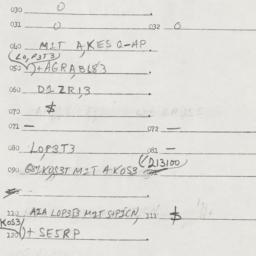 030 0
031 0 032 0
040 MIT A,KES Q-AP
(LO,P3T3
050 )+AGRABL83
060 D1ZR1,3
070 $
071 — 072 —
080 LOP3T3 081 —
090 MIT AKOS3 (D13100
110 A2A LOP3T3 MIT 111 $
KOS3
120 )+ SE5RP